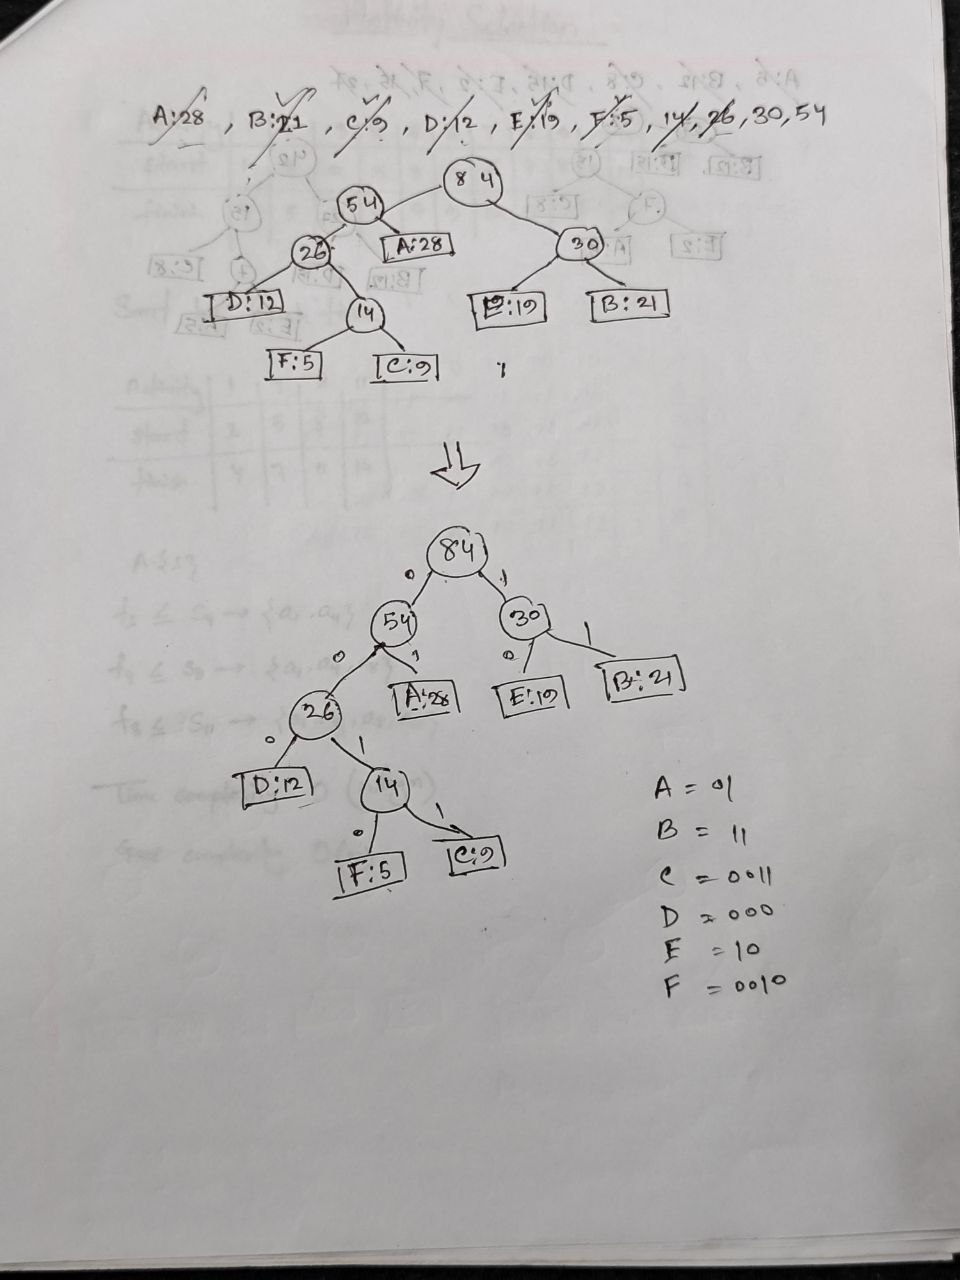 A:28 , B:21 , C:9 , D:12 , E:19 , F:5 , 14, 26, 30, 54
84
54
26 A:28 30
D:12 14 E:19 B:21
F:5 C:9
⇓
84
0 1
54 30
0 1 0 1
26 A:28 E:19 B:21
0 1
D:12 14
0 1
F:5 C:9
A = 01
B = 11
C = 0011
D = 000
E = 10
F = 0010